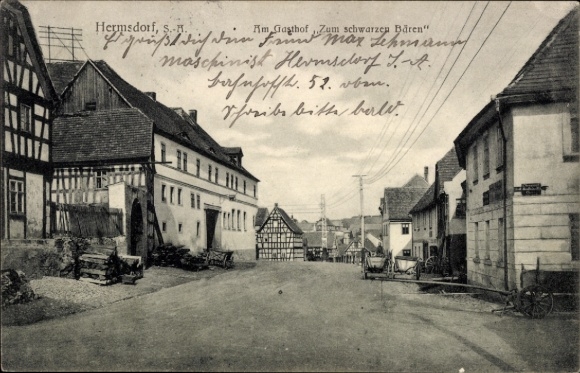 Hermsdorf, S.-A. Am Gasthof „Zum schwarzen Bären“
Es grüßt dich dein Freund Max Lehmann
Maschinist Hermsdorf S.-A.
Bahnhofstr. 52. oben.
Schreibe bitte bald.